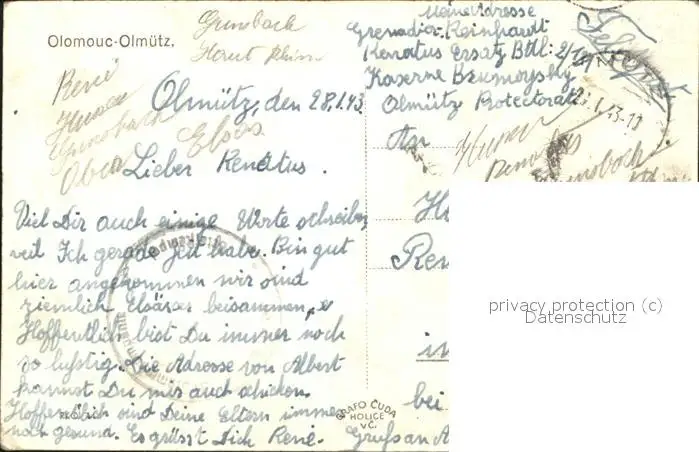 Olomouc-Olmütz,
Gunsbach
Haut Rhin
René
Gunsbach
Elsas
Olmütz, den 28.1.43.
Lieber Renatus.
Viel Dir auch einige Worte schreiben
weil Ich gerade Zeit habe. Bin gut
hier angekommen wir sind
ziemlich Elsäser beisammen,
Hoffentlich bist Du immer noch
so luftig. Die Adresse von Albert
kannst Du mir auch schicken.
Hoffentlich sind Deine Eltern immer
noch gesund. Es grüsst Dich René.
Meine Adresse
Grenadier Reinhardt
Renatus Ersatz Btl: 2/
Kaserne
Olmütz Protectorat
Feldpost
An
Ren
in
bei
Gruss an A
GRAFO ČUDA
HOLICE
V.Č.
privacy protection (c)
Datenschutz